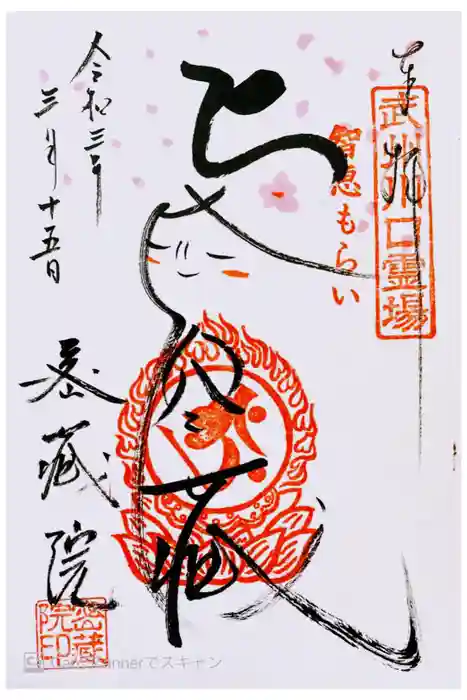 奉拝
武州川口霊場
智恵もらい
令和三年
三月十五日
密蔵院
密蔵院印
CS CamScannerでスキャン